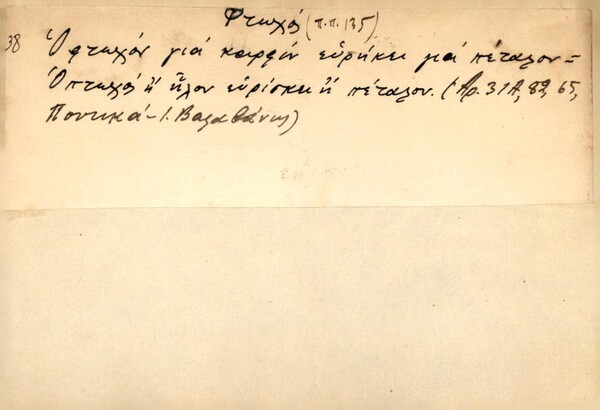 Φτωχός (π.π. 135).
38 Ὁ φτωχόν γιά καρφίν εὑρήκει γιά πέταλον =
Ὁ πτωχός ἤ ἧλον εὑρίσκει ἤ πέταλον. (Ἀρ. 31Α, 82, 65,
Ποντικά - Ι. Βαλαβάνης)